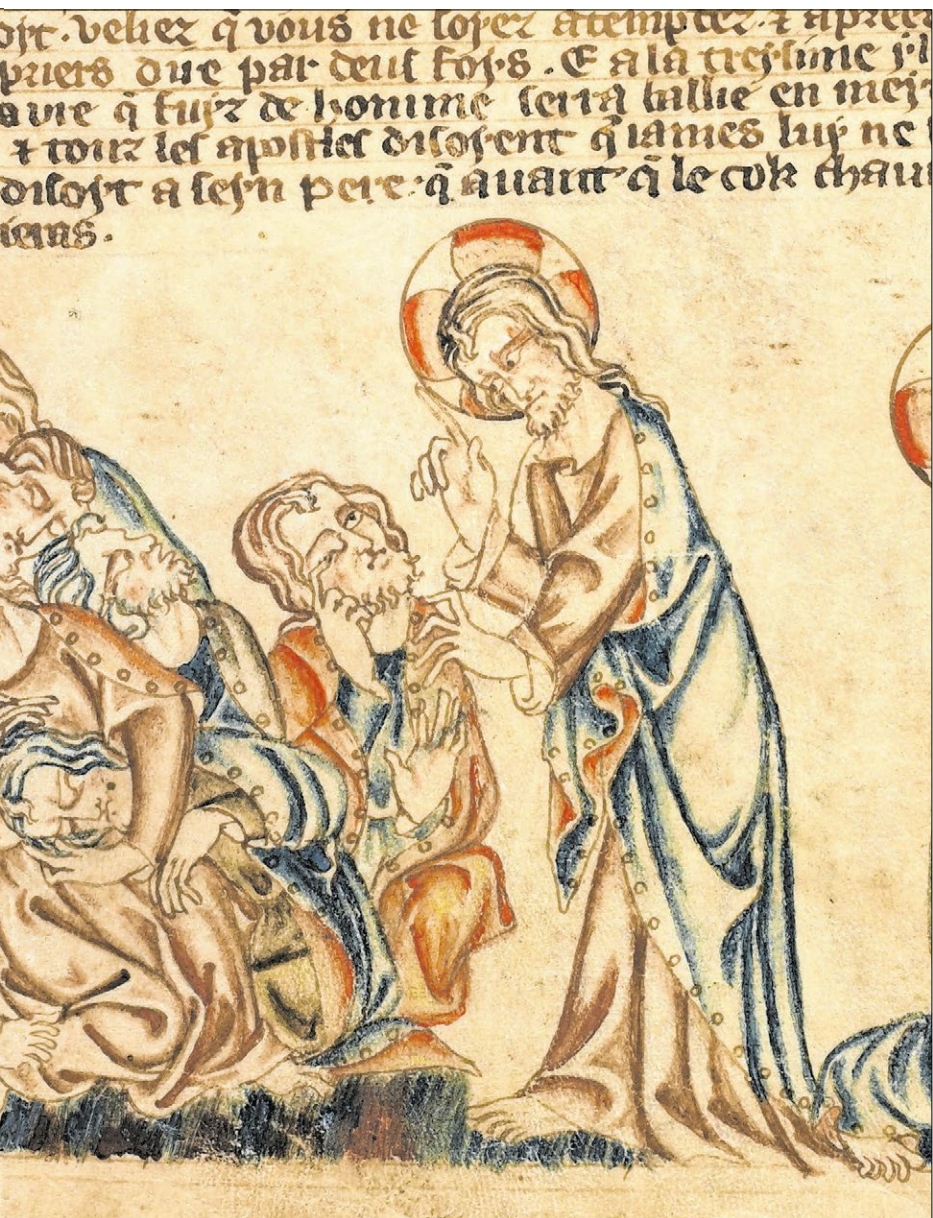 oyt. veliez q̄ vous ne soyez atemptez. ⁊ apreez
priers due par deus foys. E a la treysime
q̄ fuiz de homme serra baillie en
⁊ touz les apostles disoyent q̄ iames luy ne
disoyt a seyn pere. q̄ auant q̄ le cok chaun
ieras.